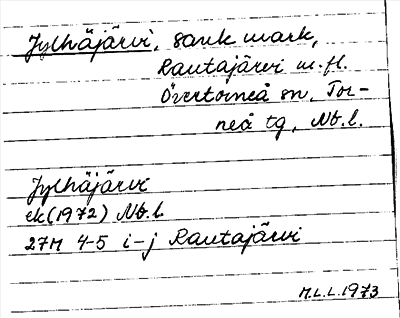 Jylhäjärvi, sank mark,
Rautajärvi m.fl.
Övertorneå sn, Tor-
neå tg, Nb.l.
Jylhäjärvi
ek(1972) Nb.l.
27M 4-5 i-j Rautajärvi
M.L.L.1973